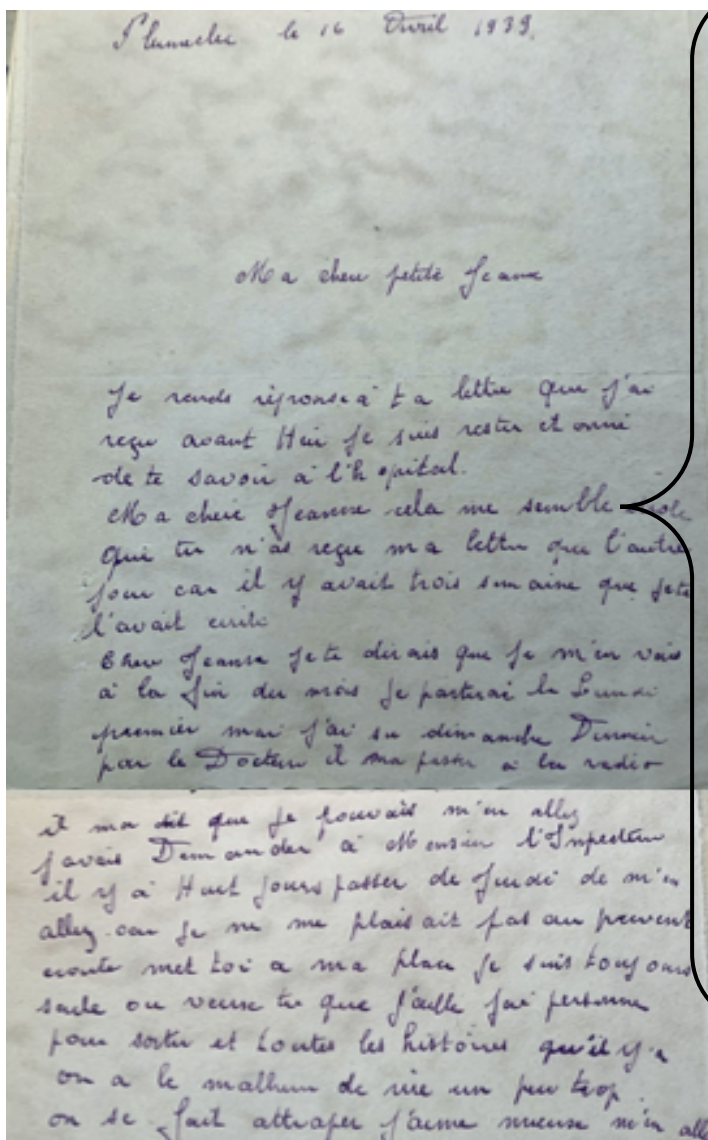 Plumelec le 16 Avril 1939.
Ma chere petite Jeanne
Je rends réponse à ta lettre que j'ai
reçu avant Hier je suis rester etonné
de te savoir à l'hopital.
Ma cheré Jeanne cela me semble drole
que tu n'as reçu ma lettre que l'autre
jour car il y avait trois semaine que je te
l'avait ecrite
Chere Jeanne je te dirais que je m'en vais
à la fin du mois je parterai le Lundi
premier mai j'ai su dimanche Dernier
par le Docteur il ma passer à la radio
il ma dit que je pouvais m'en allez
j'avais Demander à Monsieur l'Inspecteur
il y à Huit jours passer de Jeudi de m'en
allez car je ne me plaisait pas au prevent
ecoute met toi a ma place je suis toujours
seule ou veuse tu que j'aille j'ai personne
pour sortir et toutes les histoires qu'il y a
on a le malheur de rire un peu trop.
on se fait attraper j'aime mieuse m'en